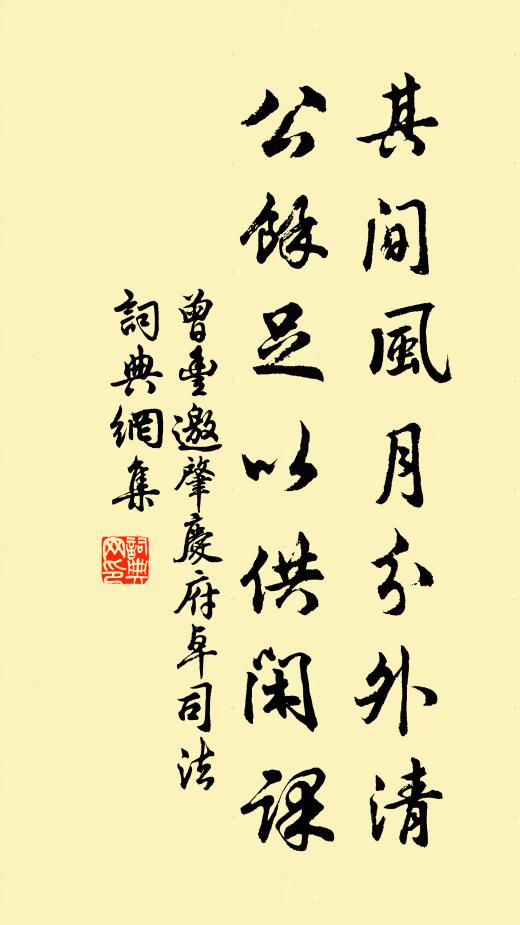 其間風月分外清
公餘足以供閑課
曾豐邀肇慶府卓司法
詞典網集
詞典網印